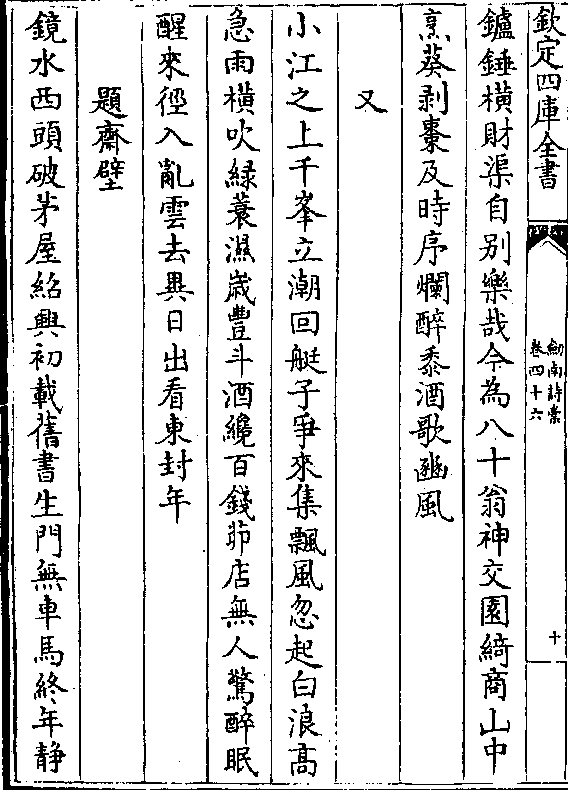 欽定四庫全書
劍南詩稾
卷四十六
十
鑪錘橫財渠自别樂哉今為八十翁神交園綺商山中
烹葵剥棗及時序爛醉黍酒歌豳風
又
小江之上千峯立潮回艇子爭來集飄風忽起白浪高
急雨橫吹綠蓑濕歲豐斗酒纔百錢茆店無人驚醉眠
醒來徑入亂雲去異日出看東封年
題齋壁
鏡水西頭破茅屋紹興初載舊書生門無車馬終年静